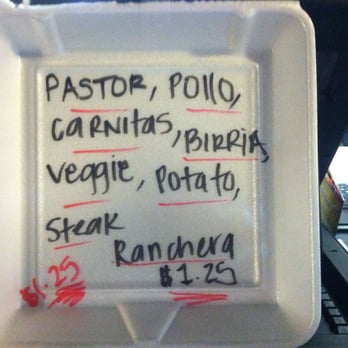 PASTOR, POLLO,
CARNITAS, BIRRIA,
Veggie, Potato,
Steak
Ranchera
$1.25 $1.25